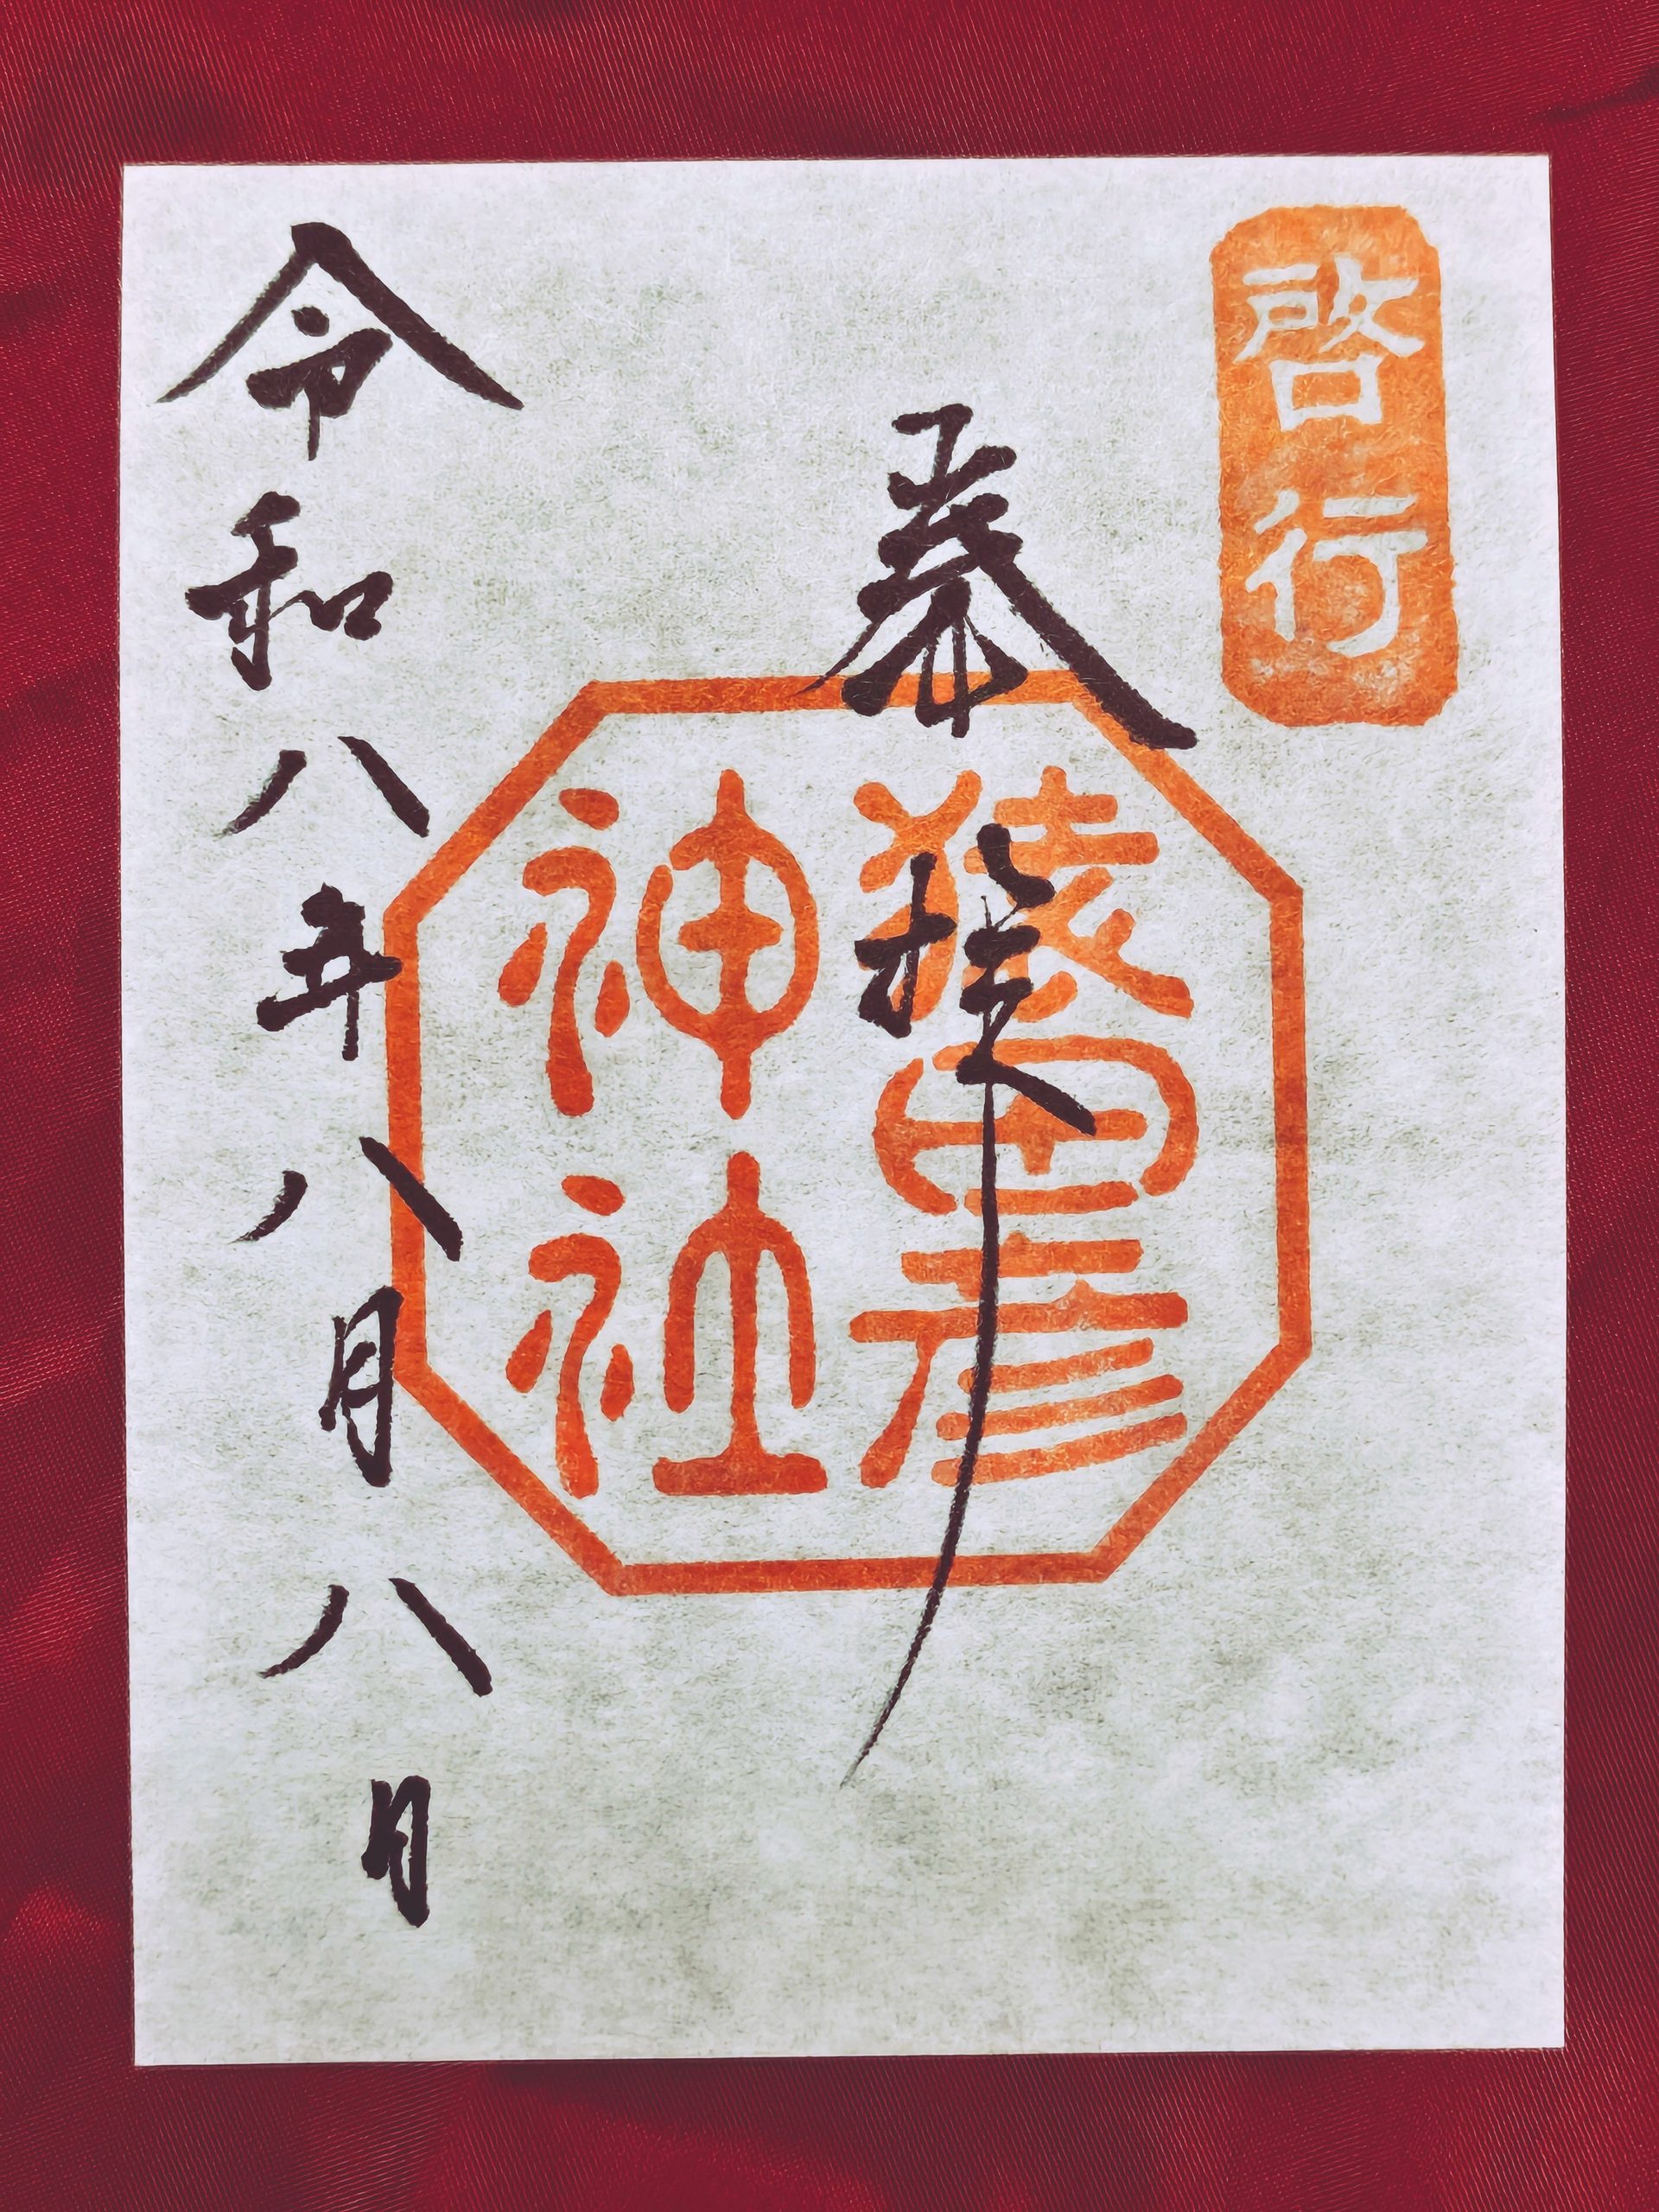 啓行
奉拝
猿田彦
神社
令和八年八月八日